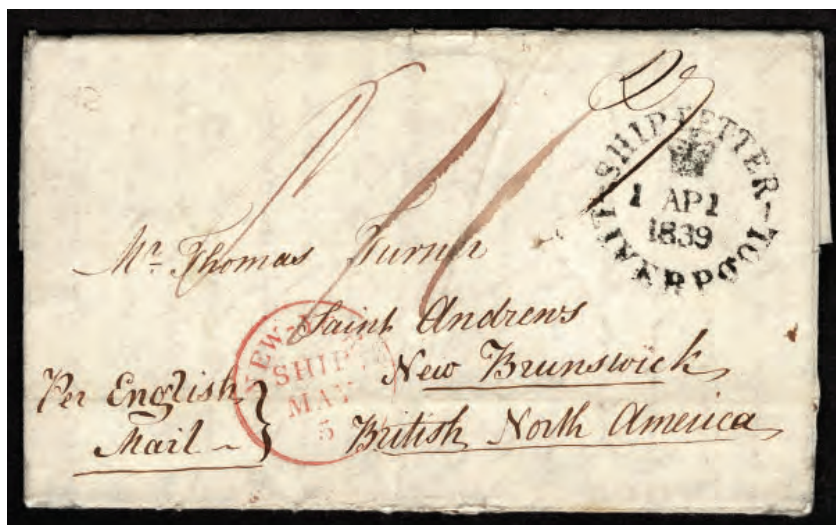 SHIP LETTER
1 AP 1
1839
LIVERPOOL
Mr. Thomas Turner
Saint Andrews
New Brunswick
British North America
Per English
Mail
NEW
SHIP
MAY
5